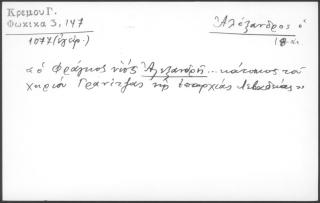 Κρεμου Γ.
Φωκικα 3, 147
1077 (ἔγγρ.)
Ἀλέξανδρος ὁ
19 αι.
« ὁ Φράγκος υἱός Ἀλεξανδρῆ ... κάτοικος τοῦ
χωριοῦ Γρανίτζας τῆς ἐπαρχίας Λεβαδείας »